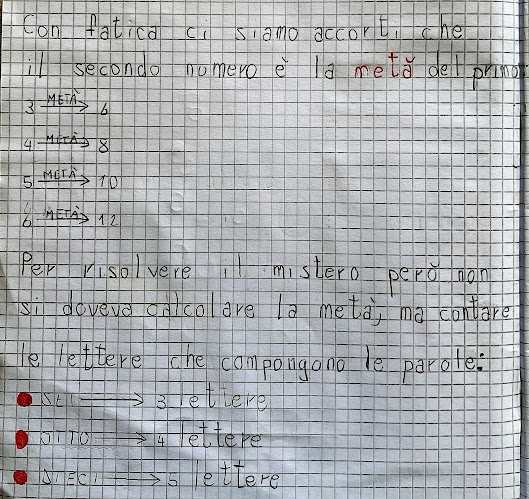 Con fatica ci siamo accorti che
il secondo numero è la metà del primo:
3 METÀ 6
4 METÀ 8
5 METÀ 10
6 METÀ 12
Per risolvere il mistero però non
si doveva calcolare la metà, ma contare
le lettere che compongono le parole:
SEI 3 lettere
OTTO 4 lettere
DIECI 5 lettere